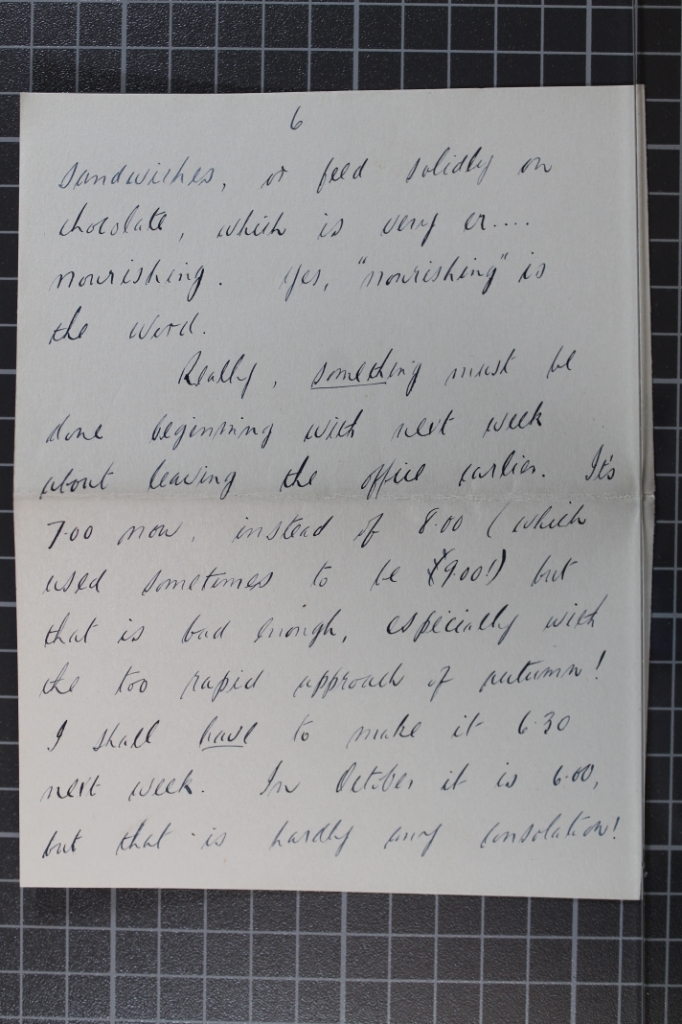 6
sandwiches, or feed solidly on
chocolate, which is very er....
nourishing. Yes, "nourishing" is
the word.
Really, something must be
done beginning with next week
about leaving the office earlier. It's
7.00 now, instead of 8.00 (which
used sometimes to be 9.00!) but
that is bad enough, especially with
the too rapid approach of autumn!
I shall have to make it 6.30
next week. In October it is 6.00,
but that is hardly any consolation!